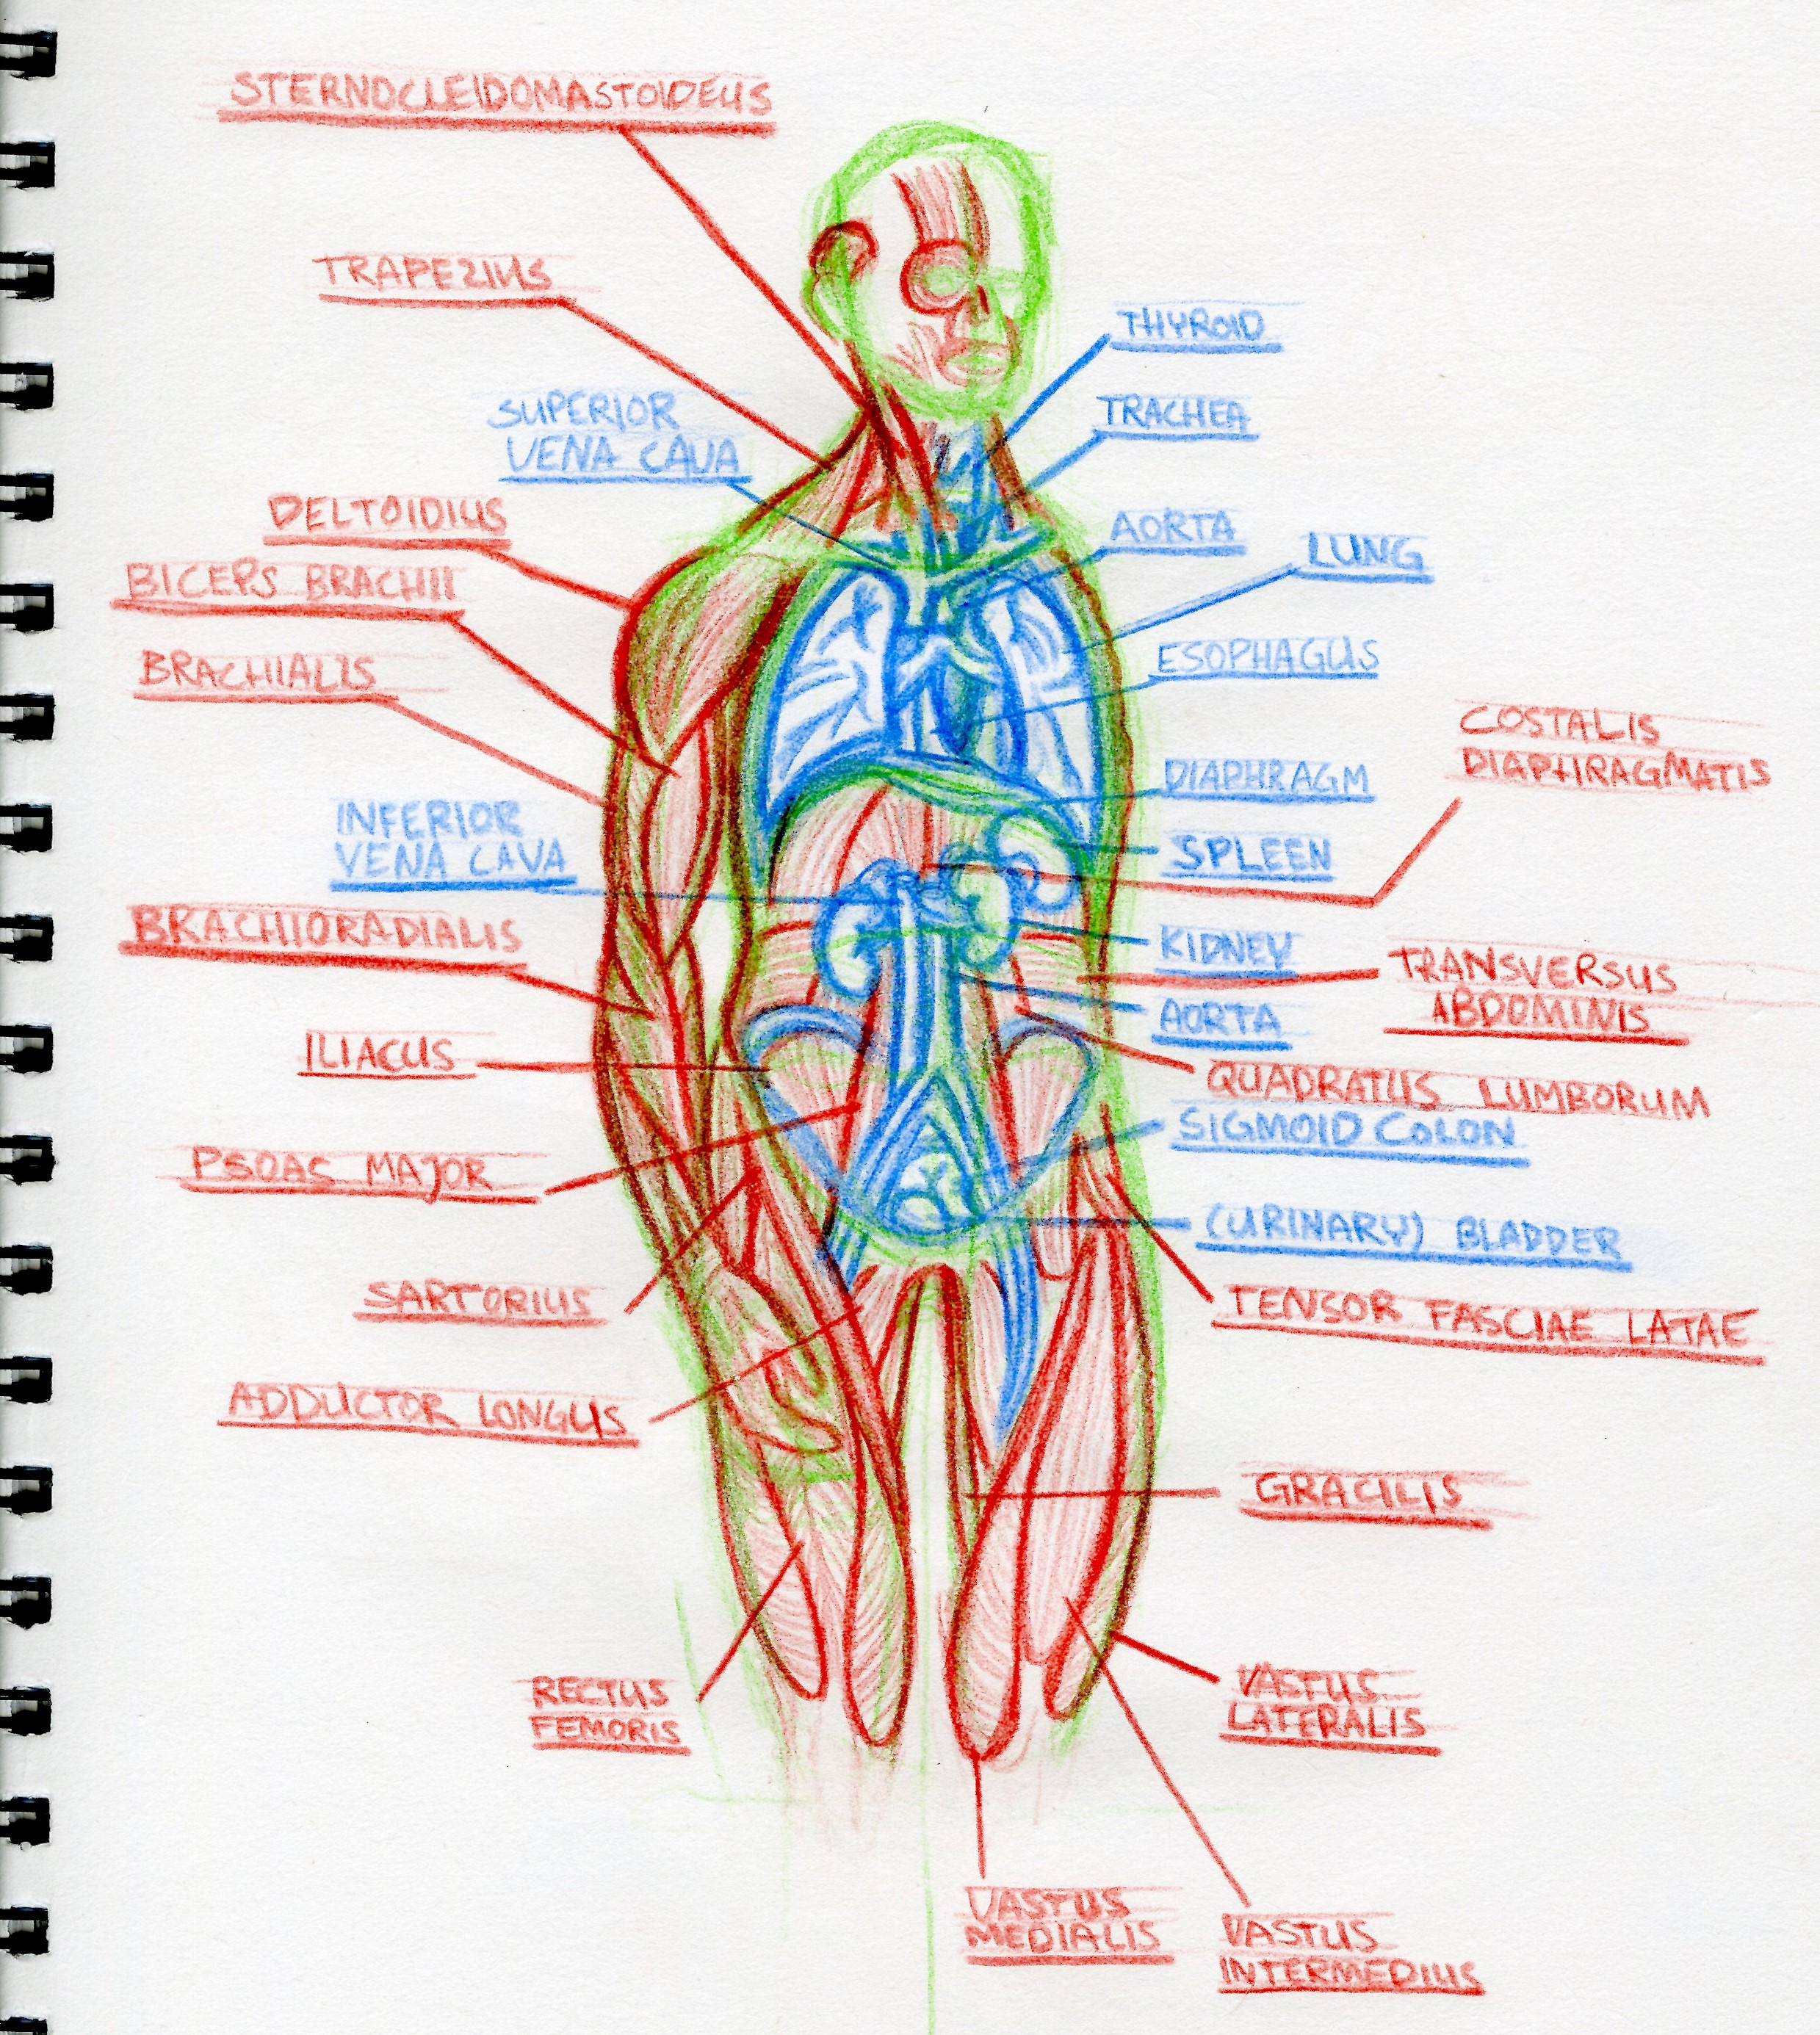 STERNOCLEIDOMASTOIDEUS
TRAPEZIUS
THYROID
SUPERIOR
VENA CAVA
TRACHEA
DELTOIDIUS
AORTA
LUNG
BICEPS BRACHII
BRACHIALIS
ESOPHAGUS
COSTALIS
DIAPHRAGMATIS
DIAPHRAGM
INFERIOR
VENA CAVA
SPLEEN
BRACHIORADIALIS
KIDNEY
TRANSVERSUS
ABDOMINIS
AORTA
ILIACUS
QUADRATUS LUMBORUM
SIGMOID COLON
PSOAS MAJOR
(URINARY) BLADDER
SARTORIUS
TENSOR FASCIAE LATAE
ADDUCTOR LONGUS
GRACILIS
RECTUS
FEMORIS
VASTUS
LATERALIS
VASTUS
MEDIALIS
VASTUS
INTERMEDIUS